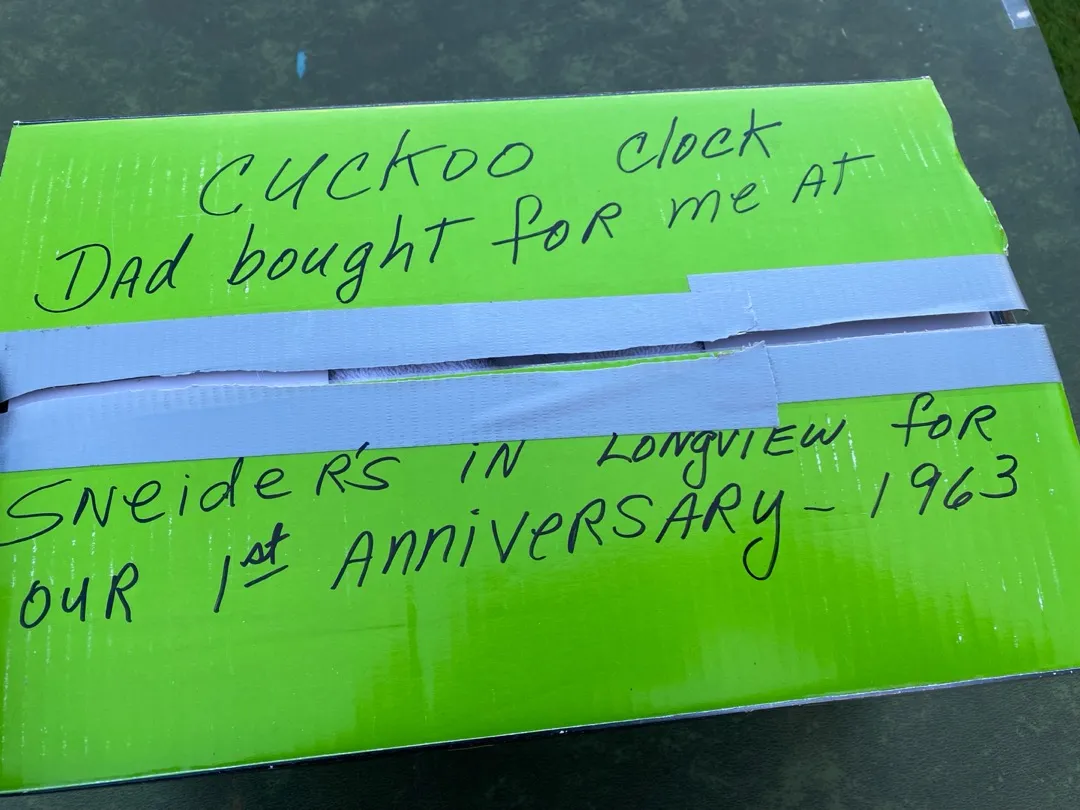 CUCKOO clock
DAd bought foR me AT
SNeideR's iN LONgVIEW foR
OUR 1st ANNiVeRSARy - 1963